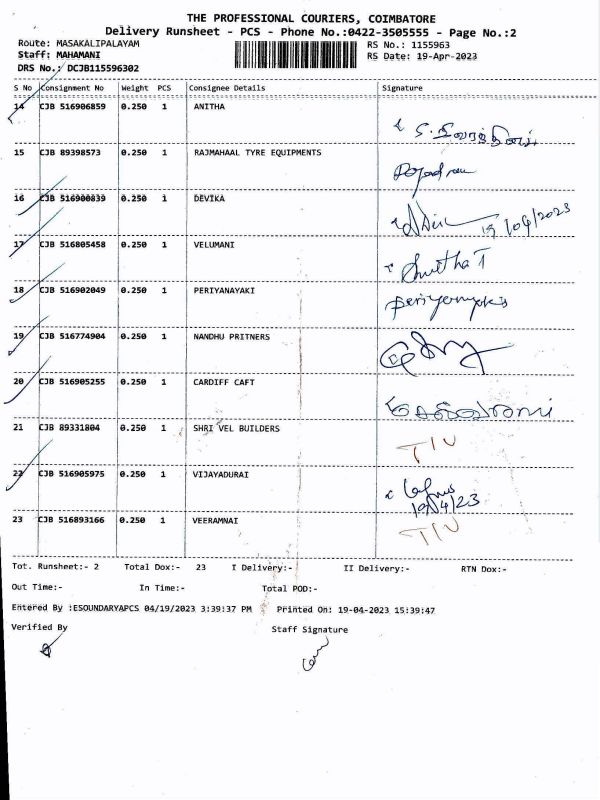 THE PROFESSIONAL COURIERS, COIMBATORE
Delivery Runsheet - PCS - Phone No.:0422-3505555 - Page No.:2
Route: MASAKALIPALAYAM RS No.: 1155963
Staff: MAHAMANI RS Date: 19-Apr-2023
DRS No.: DCJB115596302
S No Consignment No Weight PCS Consignee Details Signature
14 CJB 516906859 0.250 1 ANITHA
15 CJB 89398573 0.250 1 RAJMAHAAL TYRE EQUIPMENTS
16 CJB 516900839 0.250 1 DEVIKA
19/04/2023
17 CJB 516805458 0.250 1 VELUMANI
18 CJB 516902049 0.250 1 PERIYANAYAKI
19 CJB 516774904 0.250 1 NANDHU PRITNERS
20 CJB 516905255 0.250 1 CARDIFF CAFT
21 CJB 89331804 0.250 1 SHRI VEL BUILDERS
T/N
22 CJB 516905975 0.250 1 VIJAYADURAI
19/4/23
23 CJB 516893166 0.250 1 VEERAMNAI
T/N
Tot. Runsheet:- 2 Total Dox:- 23 I Delivery:- II Delivery:- RTN Dox:-
Out Time:- In Time:- Total POD:-
Entered By :ESOUNDARYAPCS 04/19/2023 3:39:37 PM Printed On: 19-04-2023 15:39:47
Verified By Staff Signature